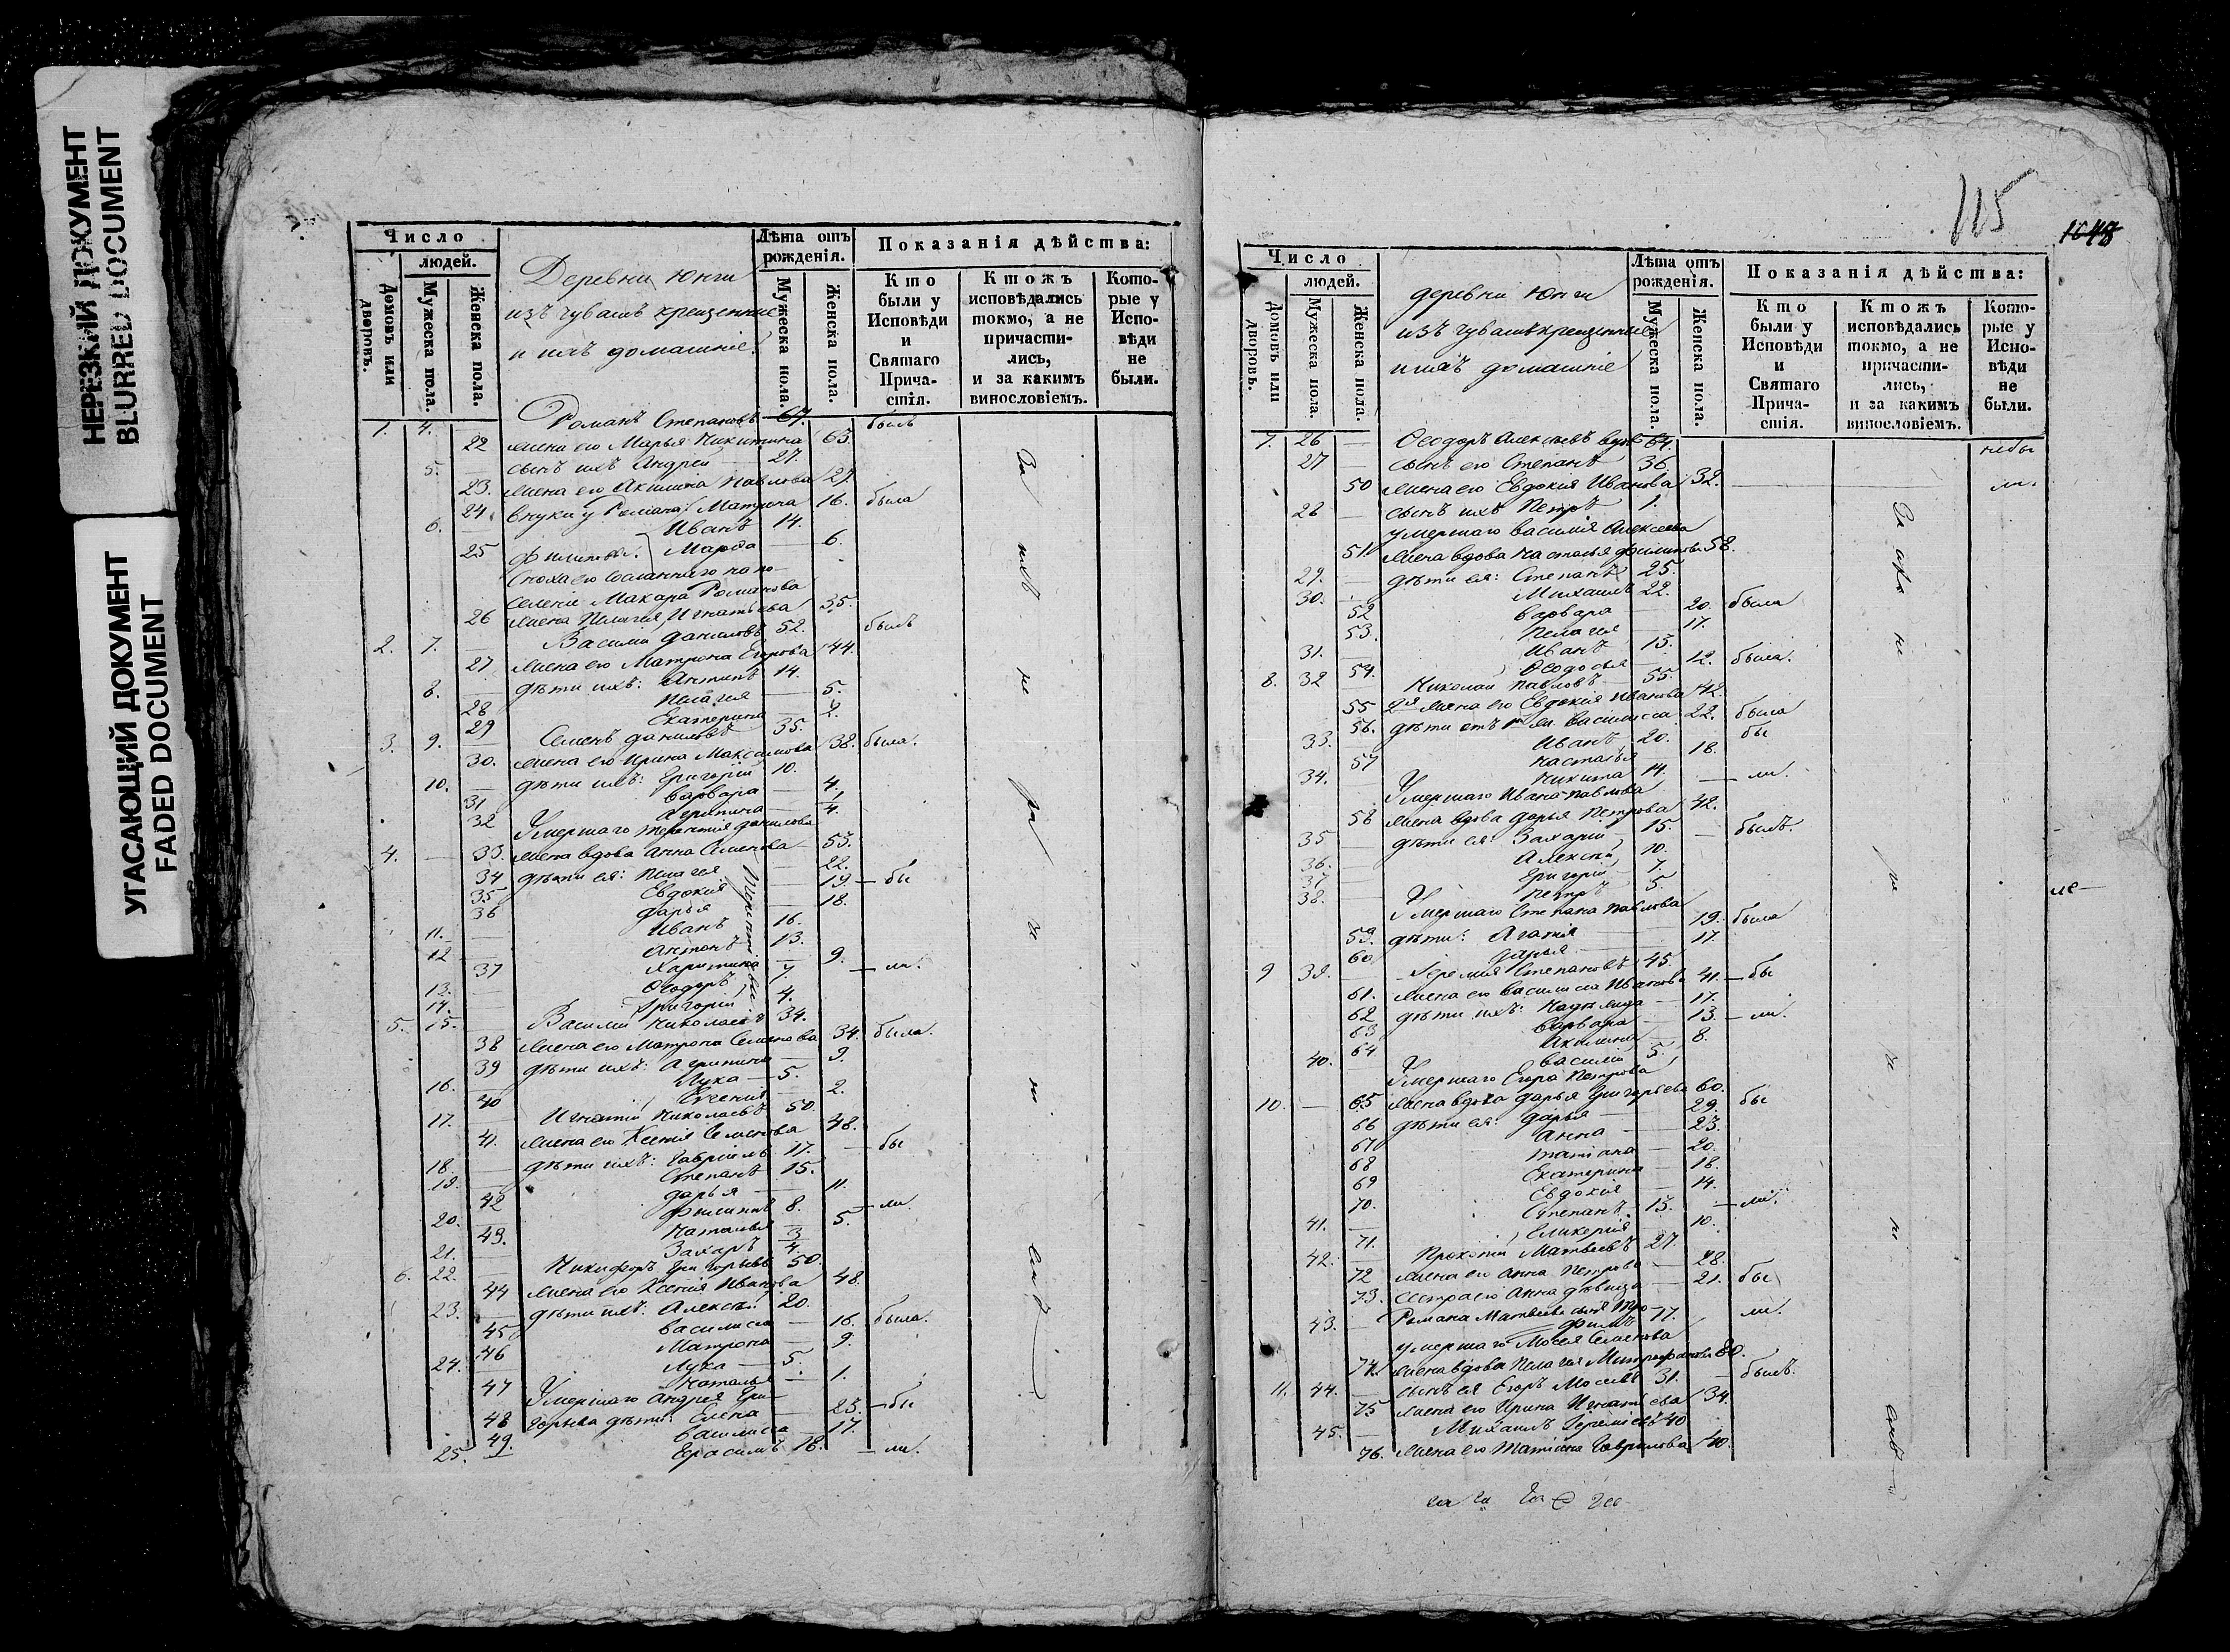 НЕРЕЗКИЙ ДОКУМЕНТ
BLURRED DOCUMENT
УГАСАЮЩИЙ ДОКУМЕНТ
FADED DOCUMENT
Число
людей.
Домовъ или дворовъ.
Мужеска пола.
Женска пола.
Деревни Юнги
изъ чувашъ крещенные
и ихъ домашніе.
Лѣта отъ рожденія.
Мужеска пола.
Женска пола.
Показанія дѣйства:
Кто были у Исповѣди и Святаго Причастія.
Ктожъ исповѣдались токмо, а не причастились, и за какимъ винословіемъ.
Которые у Исповѣди не были.
1. 4. Романъ Степановъ 67. былъ
22 жена его Марья Никитина 63.
5. сынъ ихъ Андрей 27.
23. жена его Акилина Павлова 27.
24. внуки у Романа: Матрона 16. была
6. Иванъ 14.
25 Филиповы. Марфа 6.
Сноха его сосланнаго на по-
селеніе Макара Романова
26 жена Пелагея Игнатьева 35.
2. 7. Василій Даниловъ 52. былъ
27. жена его Матрона Егорова 44.
8. дѣти ихъ: Антипъ 14.
28 Пелагея 5.
29 Екатерина 2.
3. 9. Семенъ Даниловъ 35.
30. жена его Ирина Максимова 38. была.
10. дѣти ихъ: Григорій 10.
31 Варвара 4.
32 Агрипина 1/4.
Умершаго Терентія Данилова
4. 33. жена вдова Анна Семенова 53.
34 дѣти ея: Пелагея 22.
35 Евдокия 19. бы
36 Дарья 18.
11. Иванъ 16.
12 Антонъ 13.
37 Харитина 9. ли.
13. Ѳеодоръ 7.
14. Григорій 4.
5. 15. Василій Николаевъ 34.
38 жена его Матрона Семенова 34. была.
39 дѣти ихъ: Агрипина 9.
16. Лука 5.
40 Евгения 2.
17. Игнатій Николаевъ 50.
41. жена его Ксенія Семенова 48.
18. дѣти ихъ: Гавріилъ 17. бы
19. Степанъ 15.
42 Дарья 11.
20. Филипъ 8. ли.
43. Наталья 5.
21. Захаръ 3/4.
6. 22. Никифоръ Григорьевъ 50.
44 жена его Ксенія Иванова 48.
23. дѣти ихъ: Алексѣй 20.
45 Василиса 16. была.
46 Матрона 9.
24. Лука 5.
47 Наталья 1.
Умершаго Андрея Гри-
48 горьева дѣти: Елена 23. бы
49. Василиса 17.
25. Герасимъ 18. ли.
115
1048
Число
людей.
Домовъ или дворовъ.
Мужеска пола.
Женска пола.
деревни Юнги
изъ чувашъ крещенные
и ихъ домашніе
Лѣта отъ рожденія.
Мужеска пола.
Женска пола.
Показанія дѣйства:
Кто были у Исповѣди и Святаго Причастія.
Ктожъ исповѣдались токмо, а не причастились, и за какимъ винословіемъ.
Которые у Исповѣди не были.
7. 26 Ѳеодоръ Алексѣевъ вдовъ 64. небы
27 сынъ его Степанъ 36.
50 жена его Евдокия Иванова 32. ли.
28 сынъ ихъ Петръ 1.
умершаго Василія Алексѣева
51 жена вдова Настасья Филипова 58.
29. дѣти ея: Степанъ 25.
30. Михаилъ 22.
52 Варвара 20. была
53. Пелагея 17.
31. Иванъ 15.
54. Ѳеодосья 12. была.
8. 32 Николай Павловъ 55.
55 2я жена его Евдокия Иванова 42.
56. дѣти отъ 1й ж. Василисса 22. была
33. Иванъ 20. бы
57 Настасья 18.
34. Никита 14. ли.
Умершаго Ивана Павлова
58 жена вдова Дарья Петрова 42.
35 дѣти ея: Захарій 15. былъ.
36. Алексѣй 10.
37 Григорій 7.
38. Петръ 5.
Умершаго Степана Павлова
59. дѣти: Агафія 19. была
60. Дарья 17.
9 39. Іеремія Степановъ 45.
61. жена его Василиса Иванова 41. бы
62 дѣти ихъ: Надежда 17.
63 Варвара 13. ли.
64 Акилина 8.
40. Василій 5.
Умершаго Егора Петрова
10. 65 жена вдова Дарья Григорьева 60.
66 дѣти ея: Дарья 29. бы
67 Анна 23.
68 Татіана 20.
69 Екатерина 18.
70. Евдокия 14.
41. Степанъ 13. ли.
71. Гликерія 10.
42. Прокопій Матвѣевъ 27.
72 жена его Анна Петрова 28.
73. сестра его Анна дѣвица 21. бы
43. Романа Матвѣева сынъ Тро- 17. ли.
фимъ
умершаго Мосея Семенова
74. жена вдова Пелагея Митрофанова 80.
11. 44. сынъ ея Егоръ Мосеевъ 31. былъ.
75 жена его Ирина Игнатьева 34.
45. Михаилъ Іереміевъ 40
76. жена его Татіана Гаврилова 40.